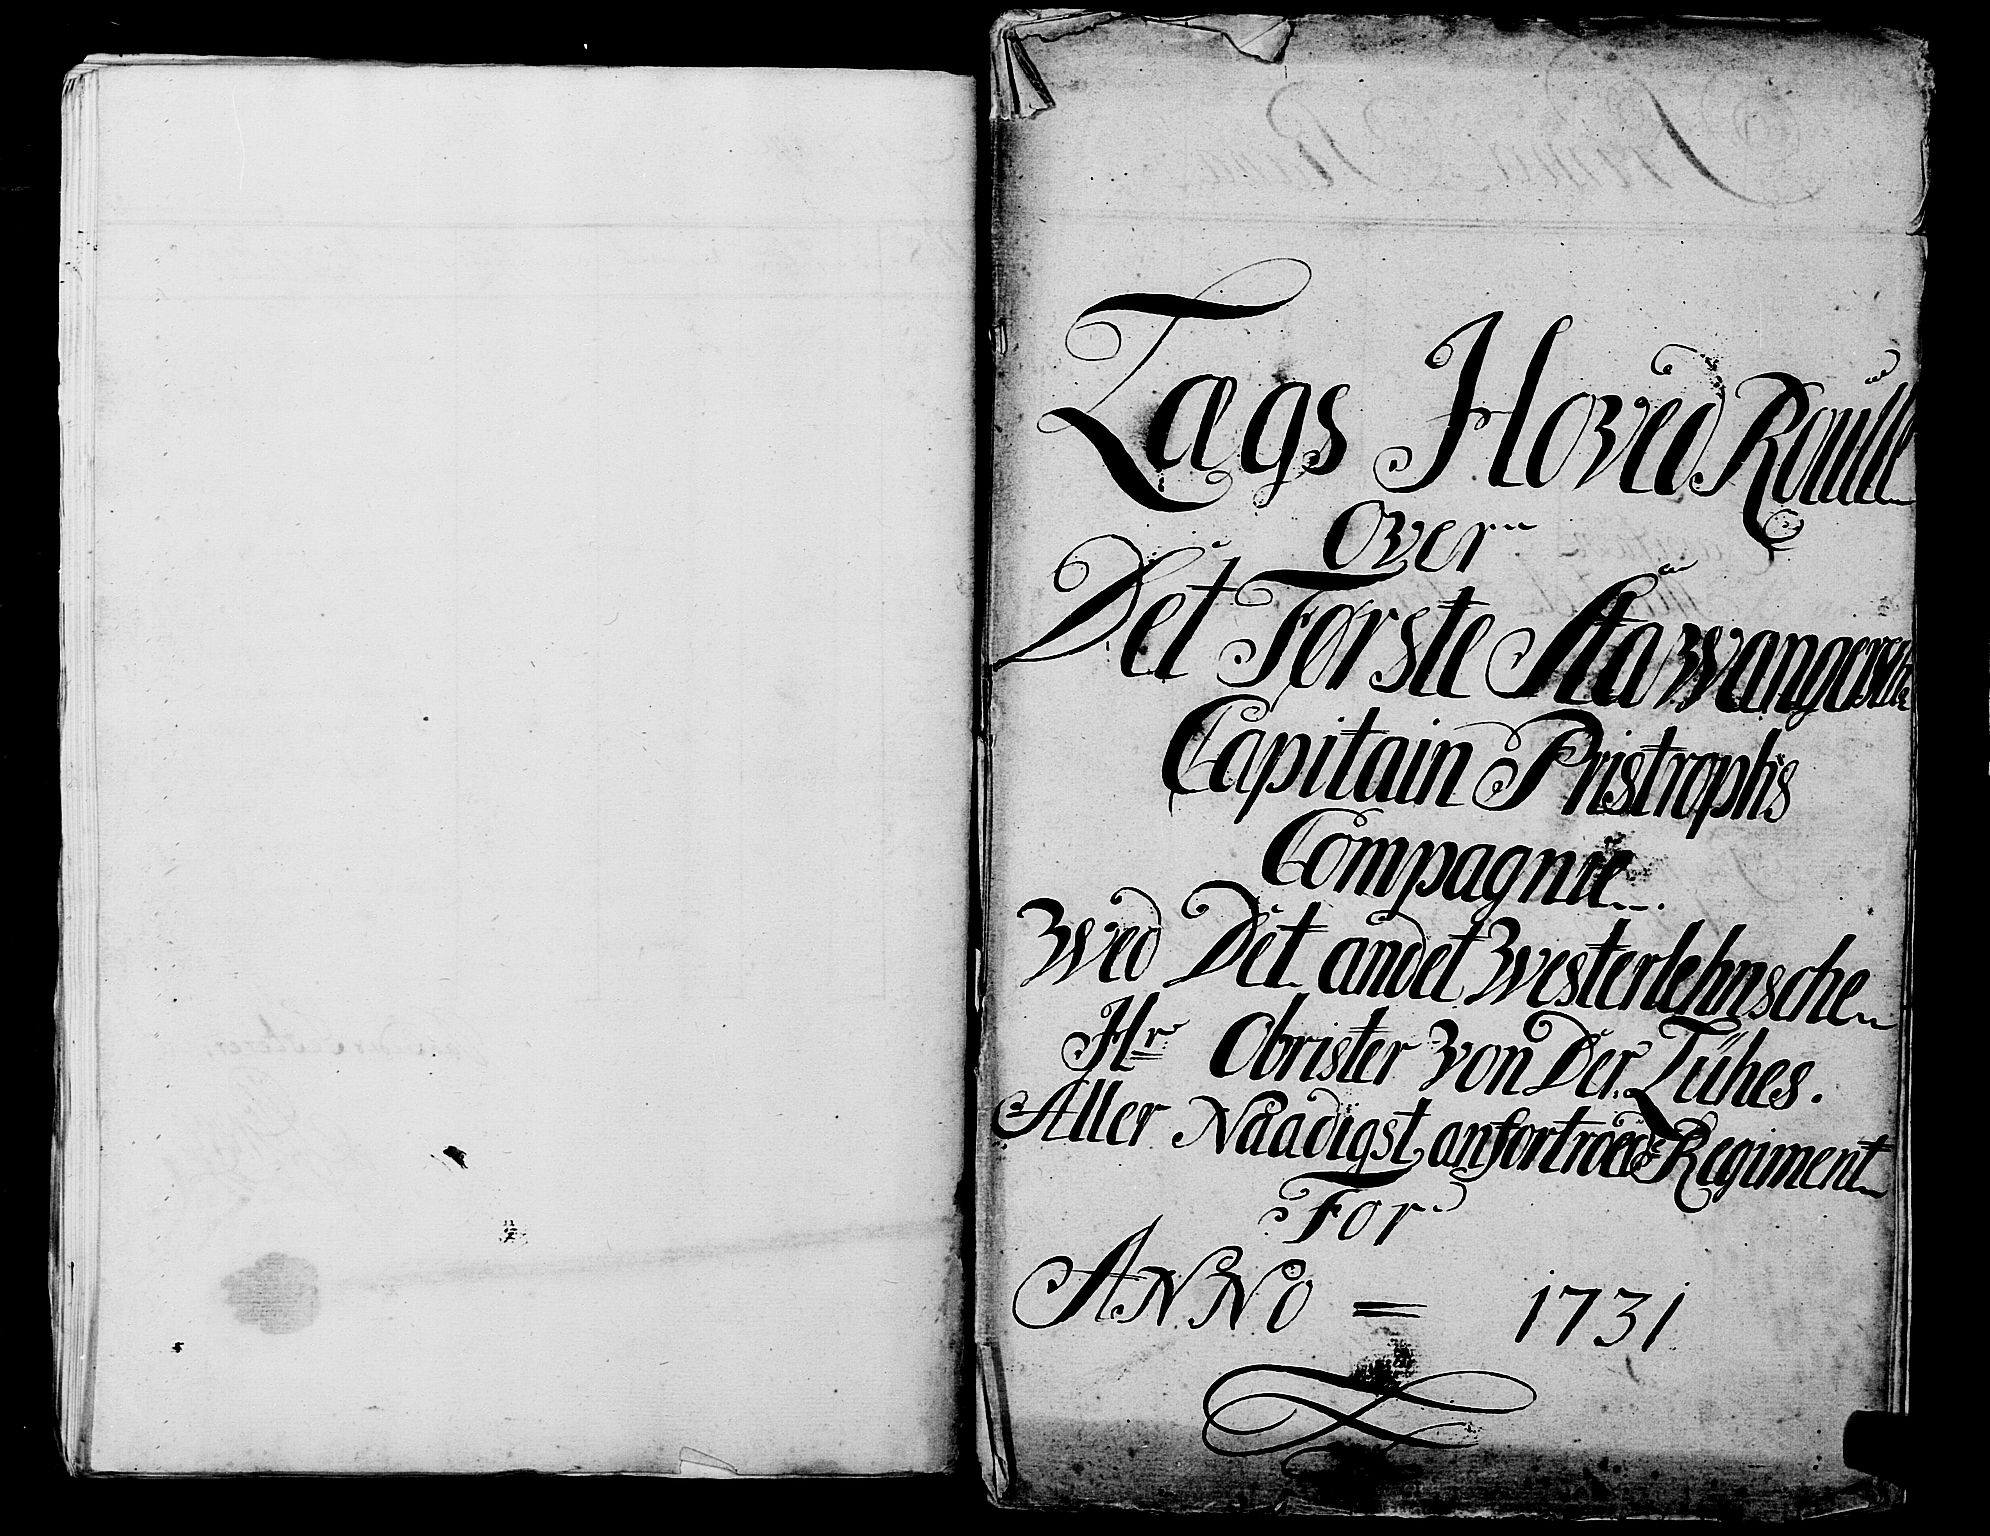 Lægs Hoved Roulle
over
Det Første Stavwangersche
Capitain Pristrophs
Compagnie
Wed Det andet Westerlehnsche
Hr Obrister von Der Lühes.
Aller Naadigst anfortroede Regiment
For
ANNO = 1731